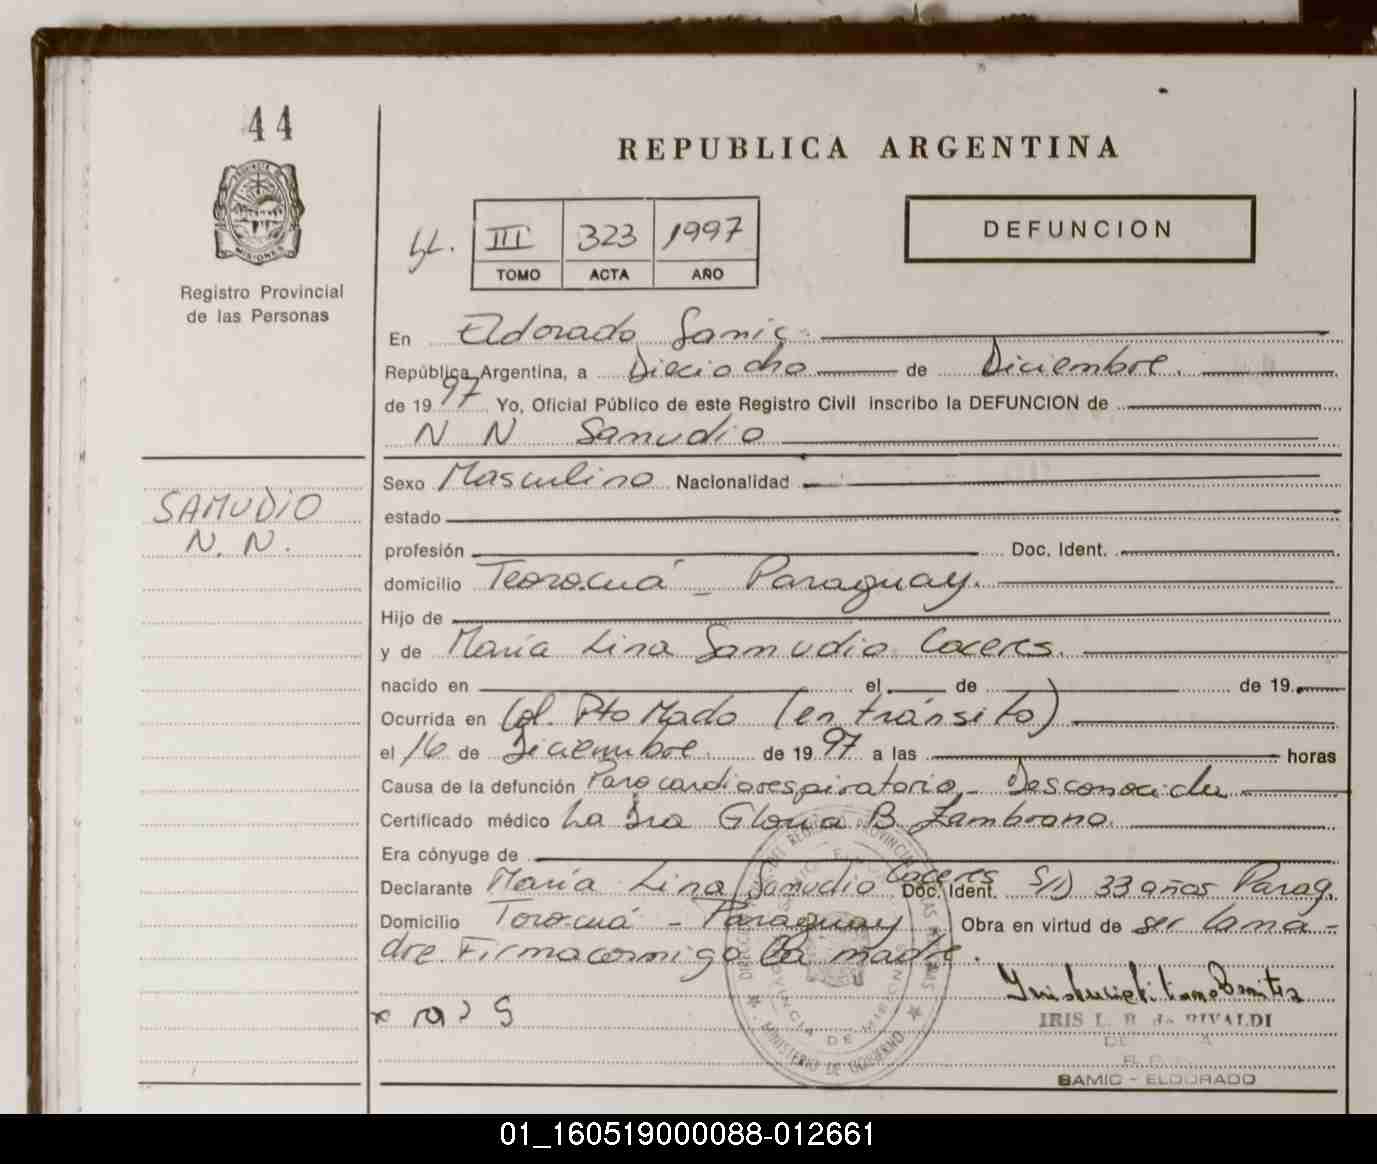 44
REPUBLICA ARGENTINA
III 323 1997
TOMO ACTA AÑO
DEFUNCION
Registro Provincial
de las Personas
En Eldorado Samic.
República Argentina, a Dieciocho de Diciembre.
de 1997 Yo, Oficial Público de este Registro Civil inscribo la DEFUNCION de
N N Samudio
SAMUDIO
N. N.
Sexo Masculino Nacionalidad
estado
profesión Doc. Ident.
domicilio Teorocuá - Paraguay.
Hijo de
y de María Lina Samudio Caceres.
nacido en el de de 19
Ocurrida en Col. Pto Mado (en tránsito)
el 16 de Diciembre de 1997 a las horas
Causa de la defunción Paro cardiorespiratorio - Desconocida
Certificado médico La Dra Gloria B. Zambrano.
Era cónyuge de
Declarante María Lina Samudio Caceres Doc. Ident. S/D 33 años Parag.
Domicilio Torocuá - Paraguay Obra en virtud de ser la ma-
dre. Firma conmigo la madre.
IRIS L. B. de RIVALDI
SAMIC - ELDORADO
MINISTERIO DE GOBIERNO
PROVINCIA DE MISIONES
01_160519000088-012661